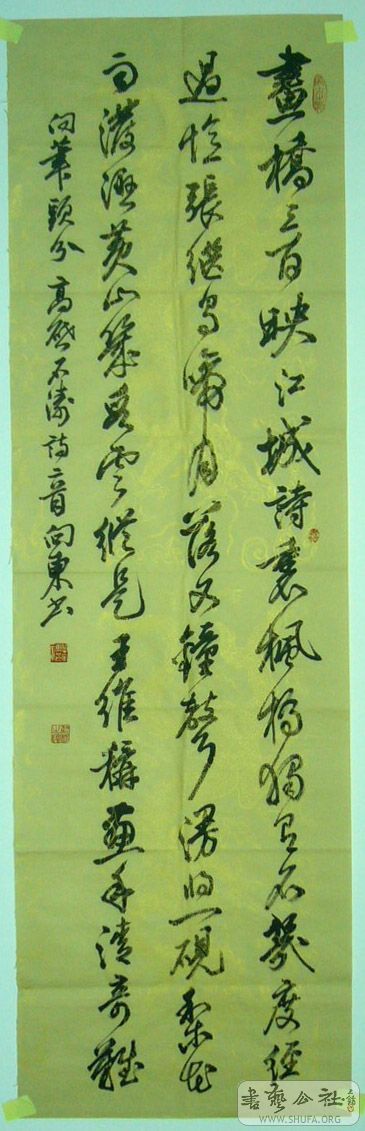 畫橋三百映江城詩裏楓橋獨有名幾度經
過憶張繼烏啼月落又鐘聲漫將一硯梨花
雨潑濕黃山幾段雲縱是王維稱畫手清奇難
向筆頭分 高啟石濤詩二首 向東書
書藝公社
WWW.SHUFA.ORG